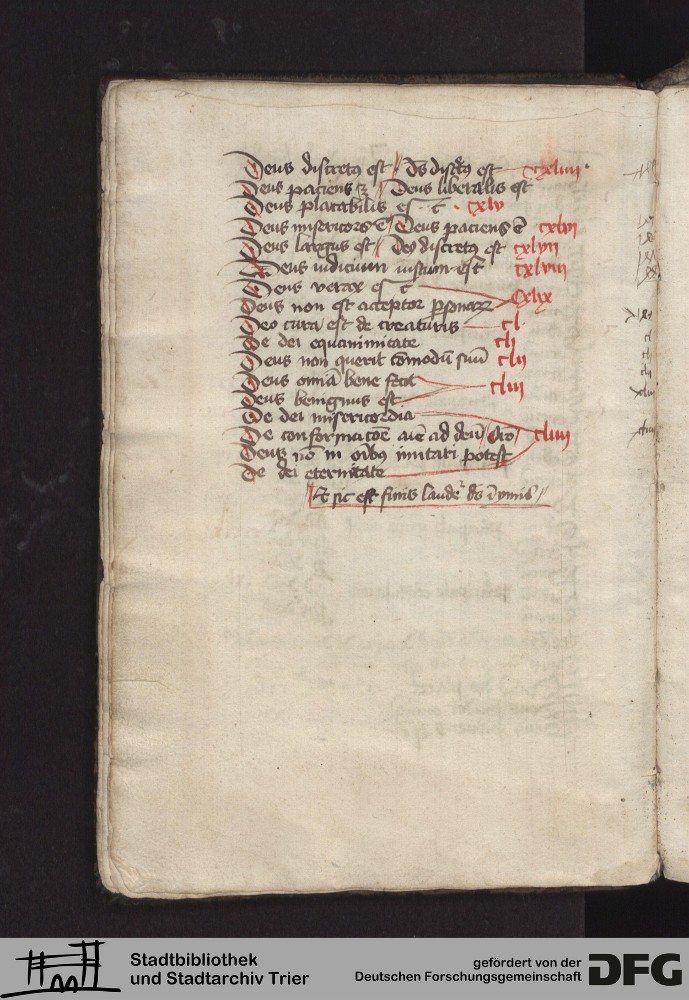 Deus discretꝰ est // Dṡ discretꝰ est cxliiii
Deus paciens // Deus liberalis est
Deus placabilis est cxlv
Deus misericors ē // Deus paciens ē cxlvi
Deus largus est // Deꝰ discretus est cxlvii
Deus iudicium iustum est cxlviii
Deus verax est
Deus non est acceptor personarum cxlix
Deo cura est de creaturis cl
De dei equanimitate cli
Deus non querit cōmodū suū clii
Deus omnia bene fecit cliii
Deus benignus est
De dei misericordia
De conformacōe aīe ad deū cliiii
Deus nō in oībus imitari potest
De dei eternitate
Et sic est finis
Stadtbibliothek
und Stadtarchiv Trier
gefördert von der
Deutschen Forschungsgemeinschaft
DFG